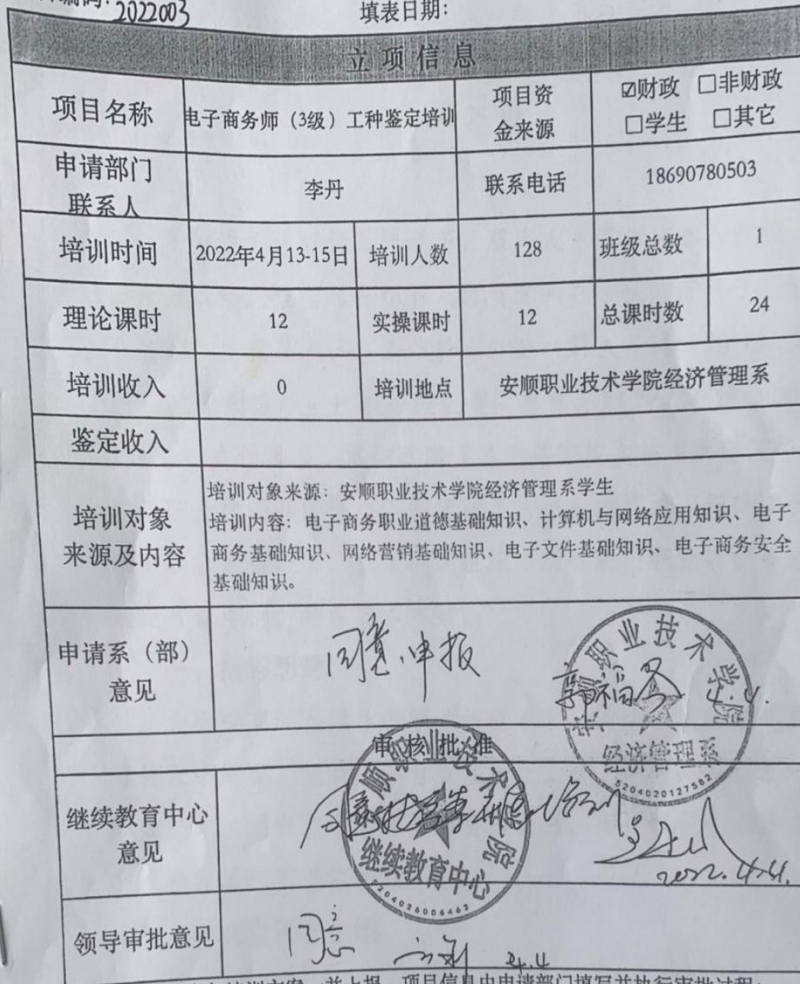 2022003
填表日期：
立项信息
项目名称
电子商务师（3级）工种鉴定培训
项目资
金来源
☑财政 □非财政
□学生 □其它
申请部门
联系人
李丹
联系电话
18690780503
培训时间
2022年4月13-15日
培训人数
128
班级总数
1
理论课时
12
实操课时
12
总课时数
24
培训收入
0
培训地点
安顺职业技术学院经济管理系
鉴定收入
培训对象
来源及内容
培训对象来源：安顺职业技术学院经济管理系学生
培训内容：电子商务职业道德基础知识、计算机与网络应用知识、电子
商务基础知识、网络营销基础知识、电子文件基础知识、电子商务安全
基础知识。
申请系（部）
意见
同意.申报
4.4.
安顺职业技术学院
经济管理系
5204020127582
审核批准
继续教育中心
意见
顺职业技术学院
继续教育中心
5204026006462
2022.4.4.
领导审批意见
同意
4.4